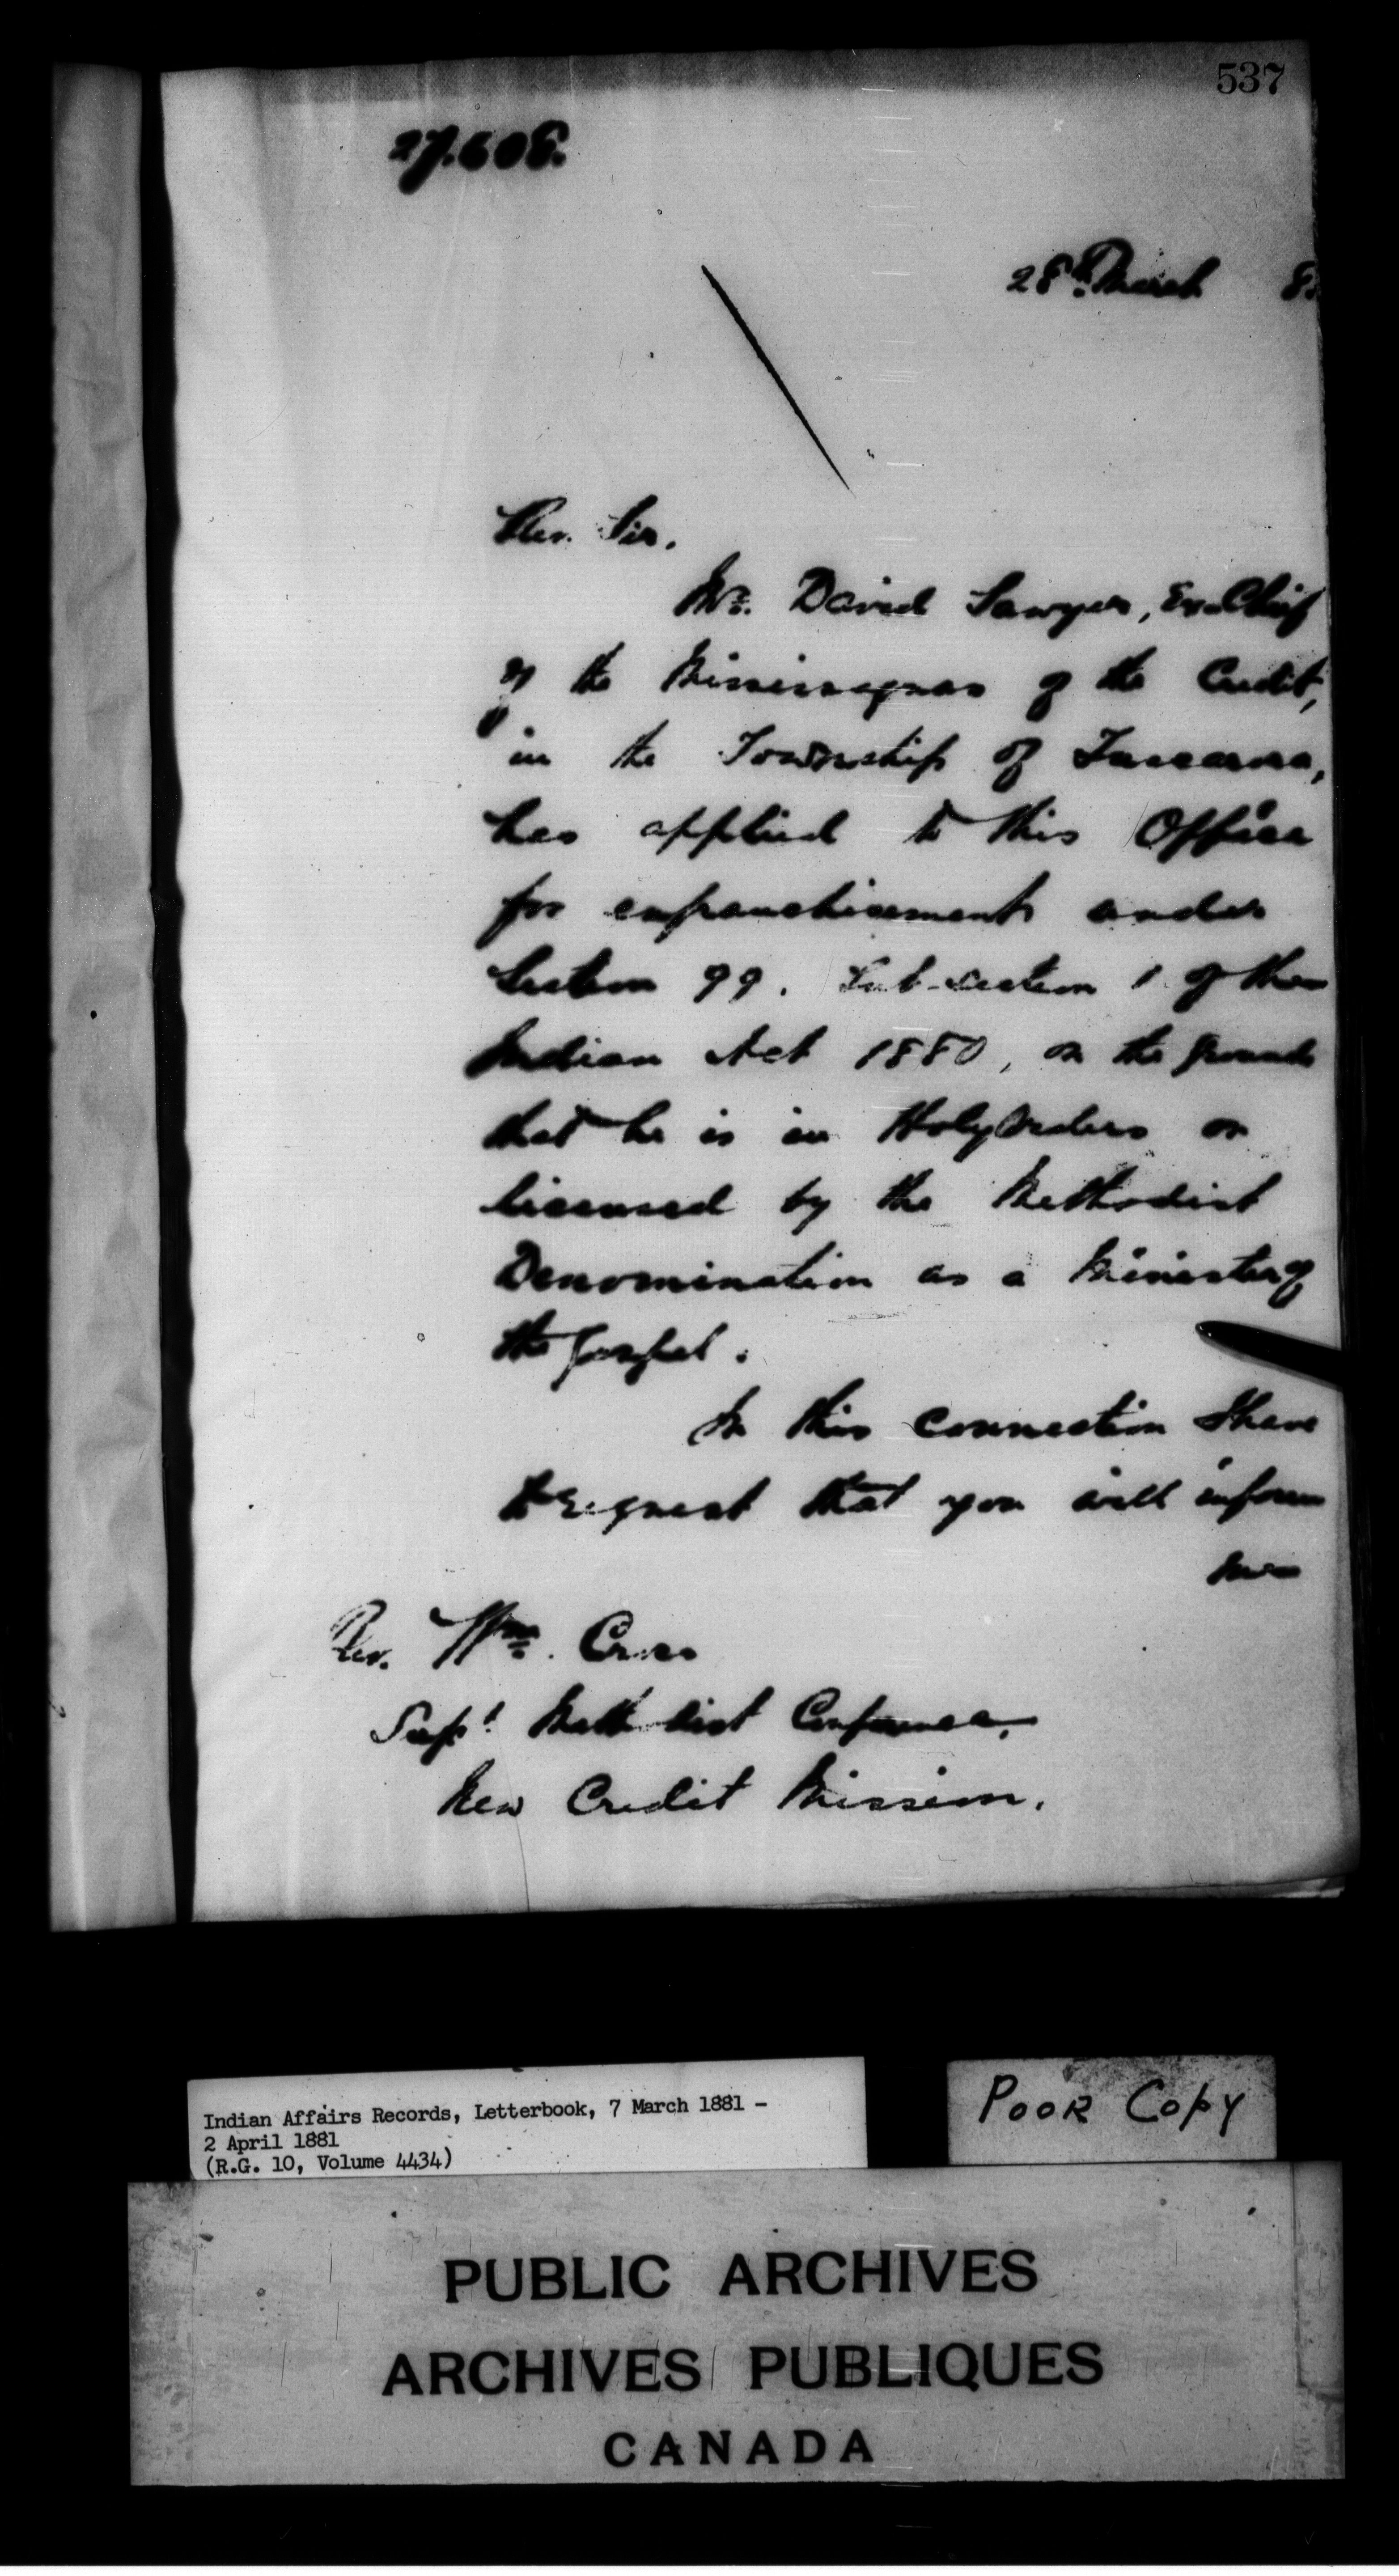 537
27.608.
28th March 8
Rev. Sir,
Mr. David Sawyer, Ex-Chief
of the Mississaguas of the Credit,
in the Township of Tuscarora,
has applied to this Office
for enfranchisement under
Section 99. Sub-section 1 of the
Indian Act 1880, on the ground
that he is in Holy Orders or
licensed by the Methodist
Denomination as a Minister of
the Gospel.
In this connection I have
to request that you will inform
me
Rev. Wm. Cross
Supt. Methodist Conference,
New Credit Mission.
Indian Affairs Records, Letterbook, 7 March 1881 -
2 April 1881
(R.G. 10, Volume 4434)
Poor Copy
PUBLIC ARCHIVES
ARCHIVES PUBLIQUES
CANADA